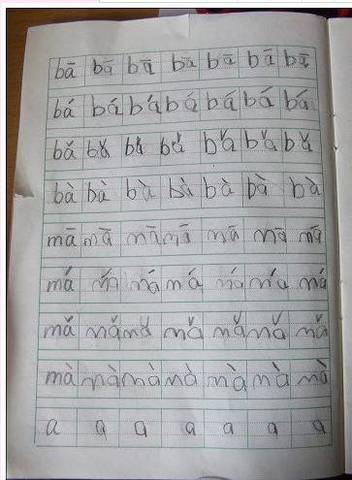 bā bā bā bā bā bā bā
bá bá bá bá bá bá bá
bǎ bǎ bǎ bǎ bǎ bǎ bǎ
bà bà bà bà bà bà bà
mā mā mā mā mā mā mā
má má má má má má má
mǎ mǎ mǎ mǎ mǎ mǎ mǎ
mà mà mà mà mà mà mà
a a a a a a a